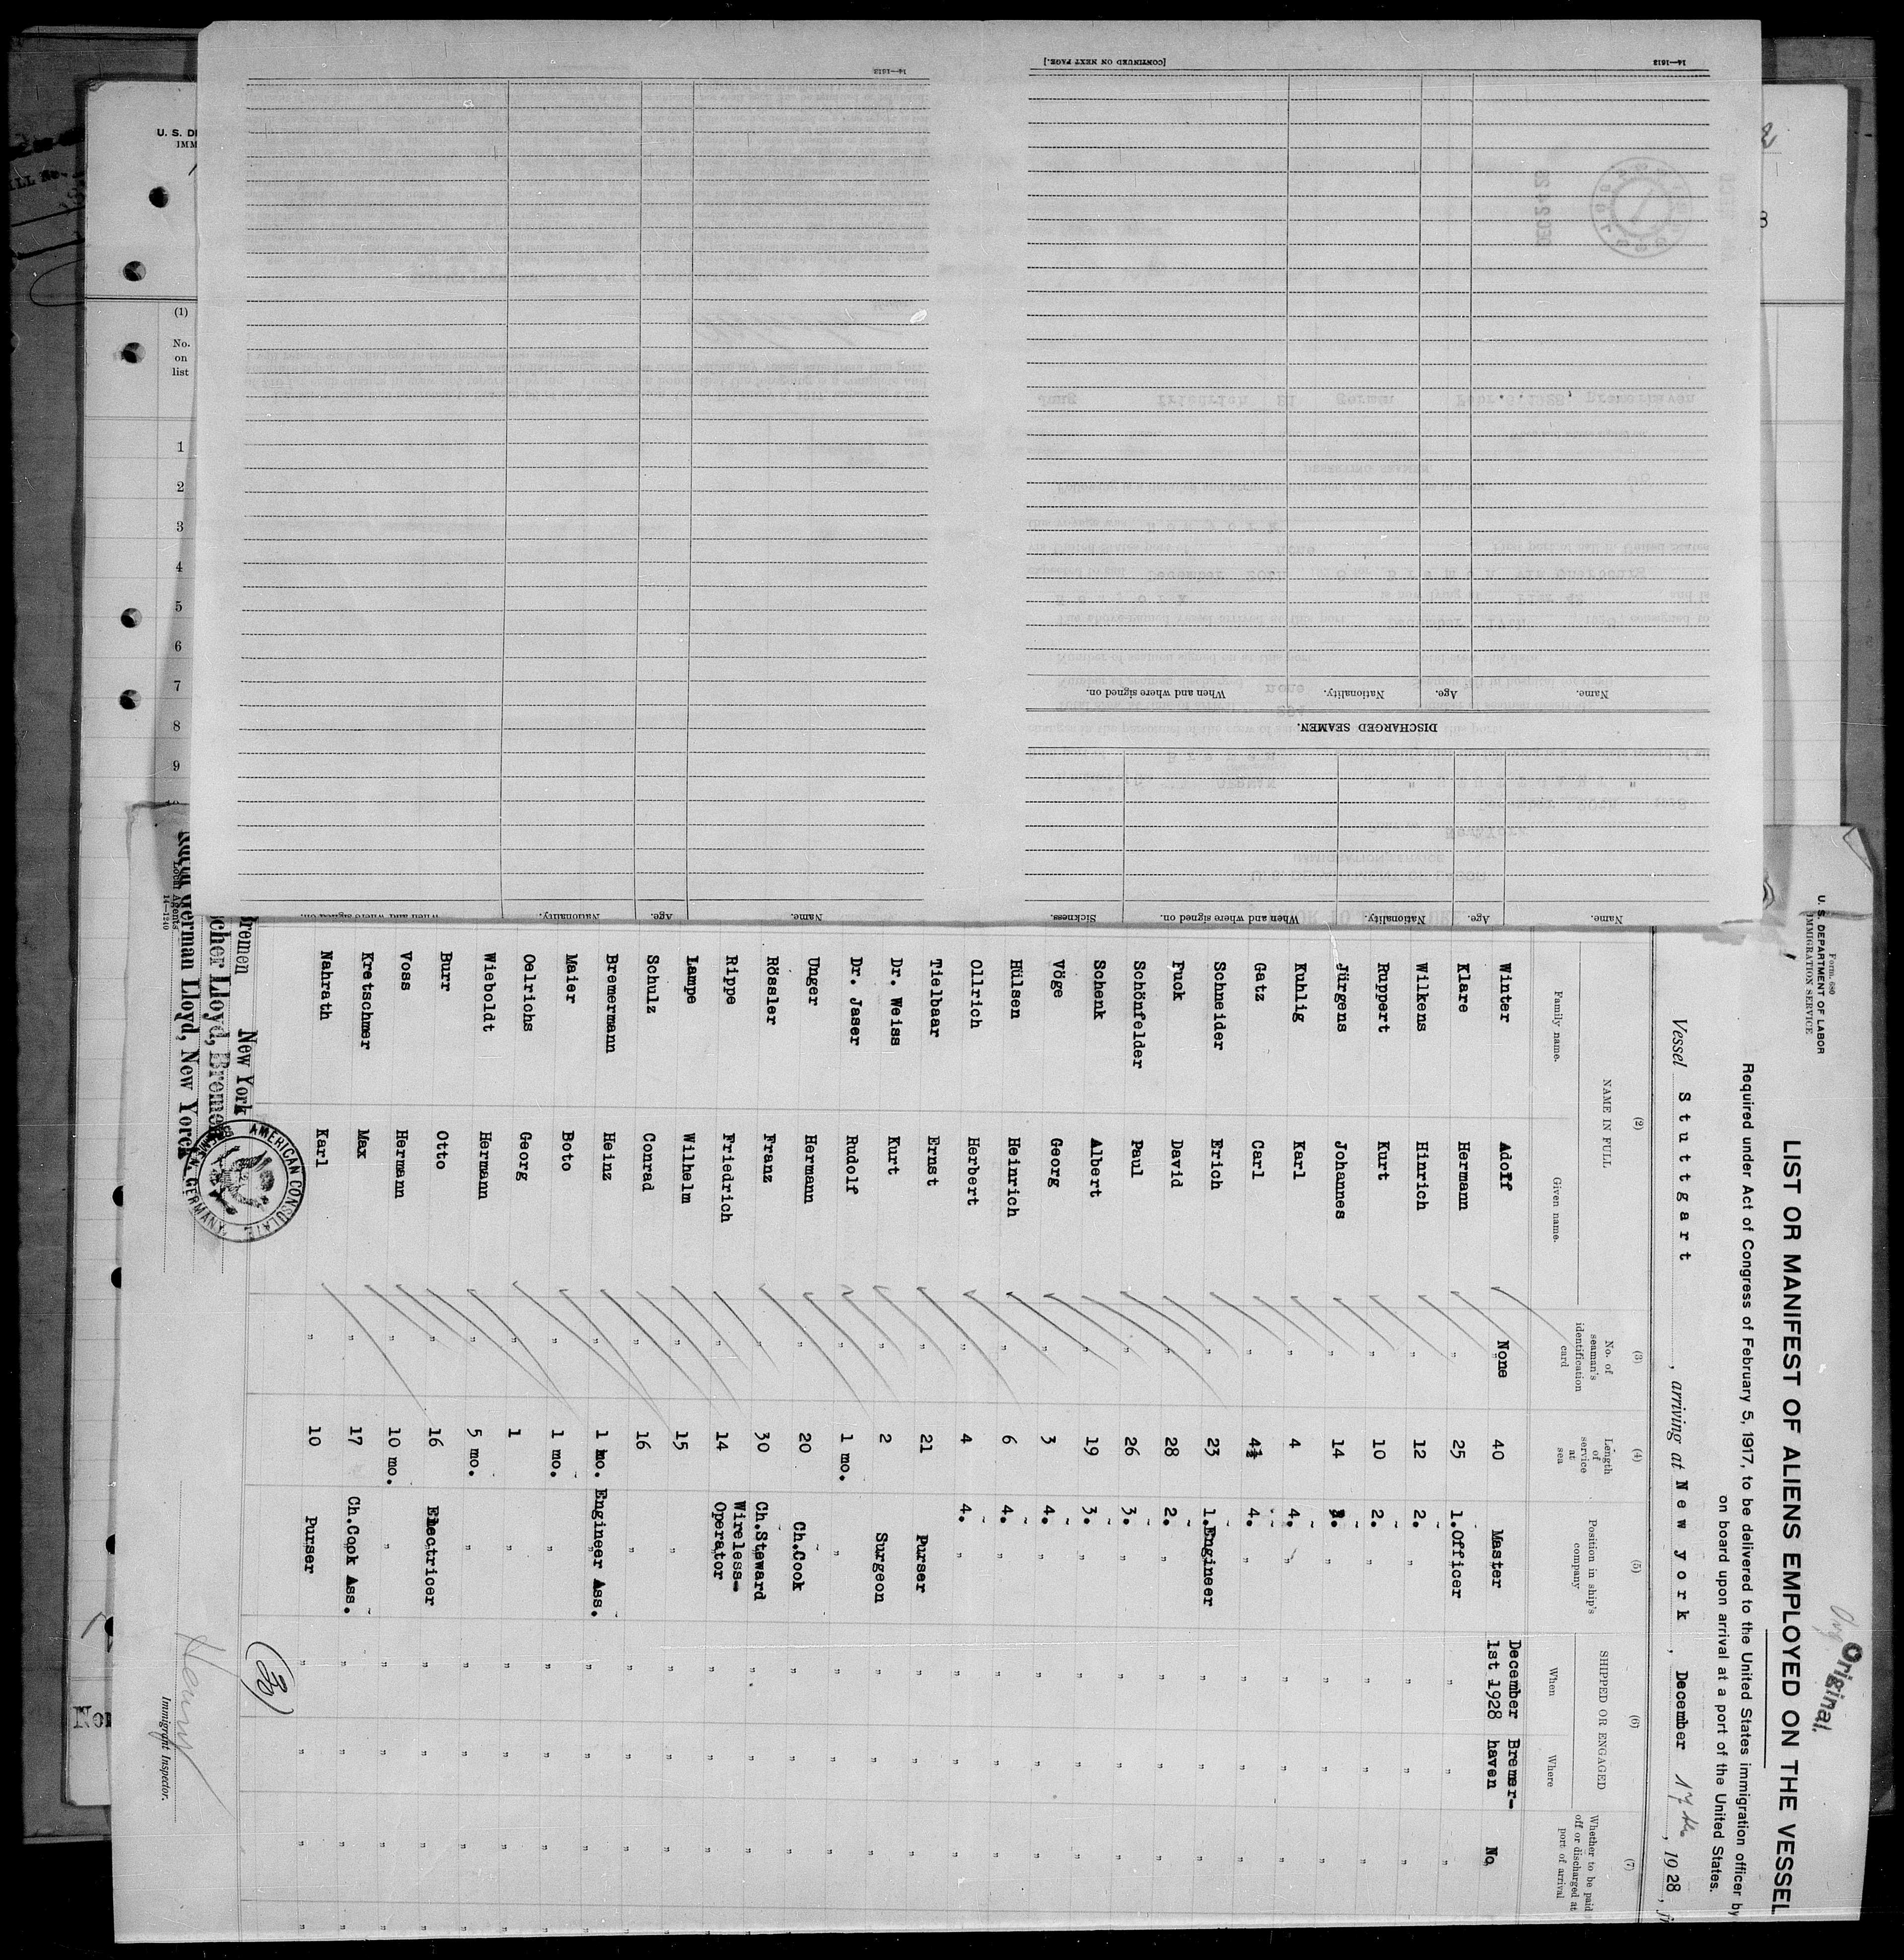 Original
Form 680
U. S. DEPARTMENT OF LABOR
IMMIGRATION SERVICE
LIST OR MANIFEST OF ALIENS EMPLOYED ON THE VESSEL
Required under Act of Congress of February 5, 1917, to be delivered to the United States immigration officer by
on board upon arrival at a port of the United States.
Vessel Stuttgart, arriving at New york, December 17th, 1928,
(2) (3) (4) (5) (6) (7)
NAME IN FULL No. of seaman's identification card Length of service at sea Position in ship's company SHIPPED OR ENGAGED Whether to be paid off or discharged at port of arrival
Family name. Given name. When Where
Winter Adolf None 40 Master December 1st 1928 Bremerhaven No
Klare Hermann " 25 1.Officer " " "
Wilkens Hinrich " 12 2. " " " "
Ruppert Kurt " 10 2. " " " "
Jürgens Johannes " 14 3. " " " "
Kuhlig Karl " 4 4. " " " "
Gatz Carl " 4½ 4. " " " "
Schneider Erich " 23 1.Engineer " " "
Fuck David " 28 2. " " " "
Schönfelder Paul " 26 3. " " " "
Schenk Albert " 19 3. " " " "
Vöge Georg " 3 4. " " " "
Hülsen Heinrich " 6 4. " " " "
Ollrich Herbert " 4 4. " " " "
Tielbaar Ernst " 21 Purser " " "
Dr. Weiss Kurt " 2 Surgeon " " "
Dr. Jaser Rudolf " 1 mo. " " " "
Unger Hermann " 20 Ch.Cook " " "
Rössler Franz " 30 Ch.Steward " " "
Rippe Friedrich " 14 Wireless-Operator " " "
Lampe Wilhelm " 15 " " " "
Schulz Conrad " 16 " " " "
Bremermann Heinz " 1 mo. Engineer Ass. " " "
Maier Boto " 1 mo. " " " "
Oelrichs Georg " 1 " " " "
Wieboldt Hermann " 5 mo. " " " "
Burr Otto " 16 Electricer " " "
Voss Hermann " 10 mo. " " " "
Kretschmer Max " 17 Ch.Cook Ass. " " "
Nahrath Karl " 10 Purser " " "
New York
cher Lloyd, Bremen
German Lloyd, New York
Local Agents
14—1240
AMERICAN CONSULATE
BREMEN, GERMANY
Immigrant Inspector.
14—1613
[CONTINUED ON NEXT PAGE.]
DISCHARGED SEAMEN.
Name. Age. Nationality. When and where signed on.
Name. Age. Nationality. When and where signed on. Sickness.
Name. Age. Nationality. When and where signed on.
14—1613
(1)
No.
on
list
1
2
3
4
5
6
7
8
9